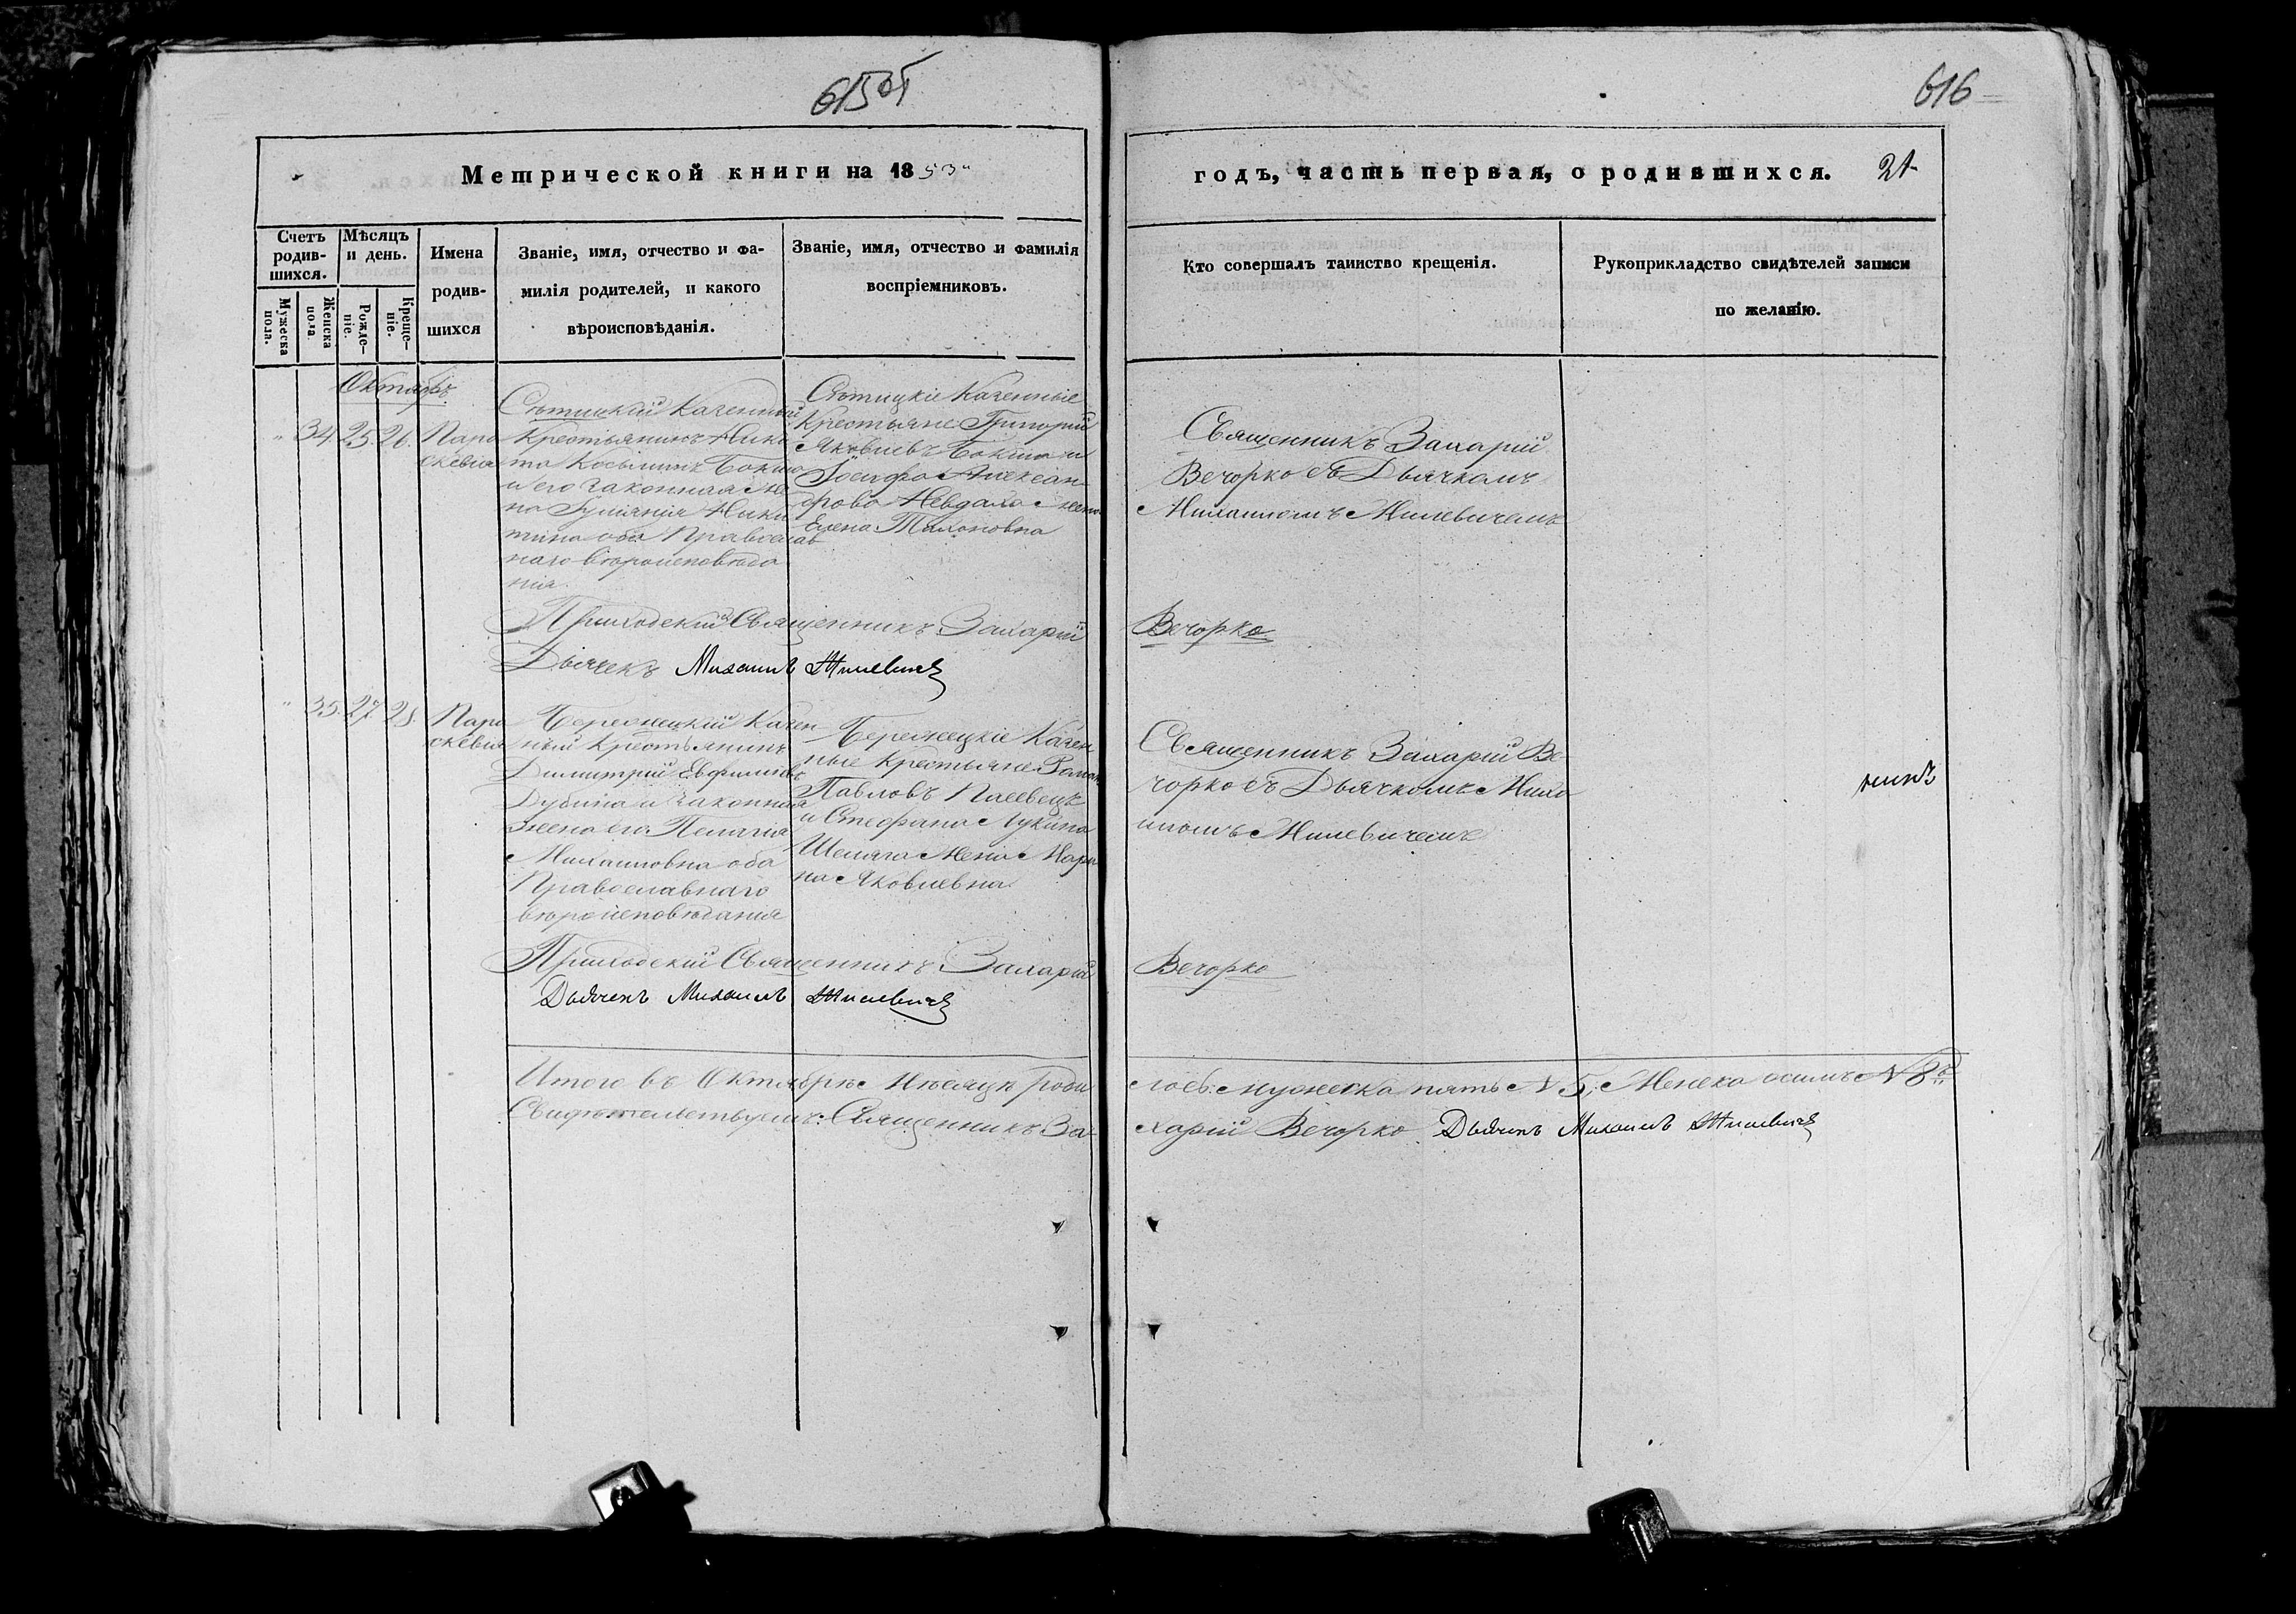 615 об
616
Метрической книги на 1853
годъ, часть первая, о родившихся. 21
Счетъ родив-шихся.
Мѣсяцъ и день.
Имена родив-шихся
Званіе, имя, отчество и фа-
милія родителей, и какого
вѣроисповѣданія.
Званіе, имя, отчество и фамилія
воспріемниковъ.
Кто совершалъ таинство крещенія.
Рукоприкладство свидѣтелей записи
по желанію.
Мужеска пола.
Женска пола.
Рожде-ніе.
Креще-ніе.
Октябрь
" 34. 25. 26.
Пара
скевіа
Казенный
Крестьянинъ Ники
та Косьминъ
и его законная же
на Ники
тина оба Православ
наго вѣроисповѣда
нія.
Казенные
Крестьяне Григорій
Яковлевъ и
Іосифа Алексан
дрова жена
Елена
Священникъ Захарій
Вечорко съ Дьячкомъ
Михаиломъ Милевичемъ
Приходскій Священникъ Захарій
Вечорко
Дьячекъ Михаилъ Милевичъ
" 35. 27 28.
Пара
скевіа
Бережецкій Казен
ный Крестьянинъ
Димитрій Евфимовъ
Дубина и законная
жена его Пелагія
Михаиловна оба
Православнаго
вѣроисповѣданія
Бережецкіе Казен
ные Крестьяне Роман
Павловъ
и Стефана Лукина
Шеляга Жена Мари
на Яковлевна.
Священникъ Захарій Ве
чорко съ Дьячкомъ Миха
иломъ Милевичемъ
Приходскій Священникъ Захарій
Вечорко
Дьячекъ Михаилъ Милевичъ
Итого въ Октябрѣ Мѣсяцѣ роди
лось: мужеска пять N 5; Женска осимь N 8.
Свидѣтельствуемъ: Священникъ За
харій Вечорко Дьячекъ Михаилъ Милевичъ